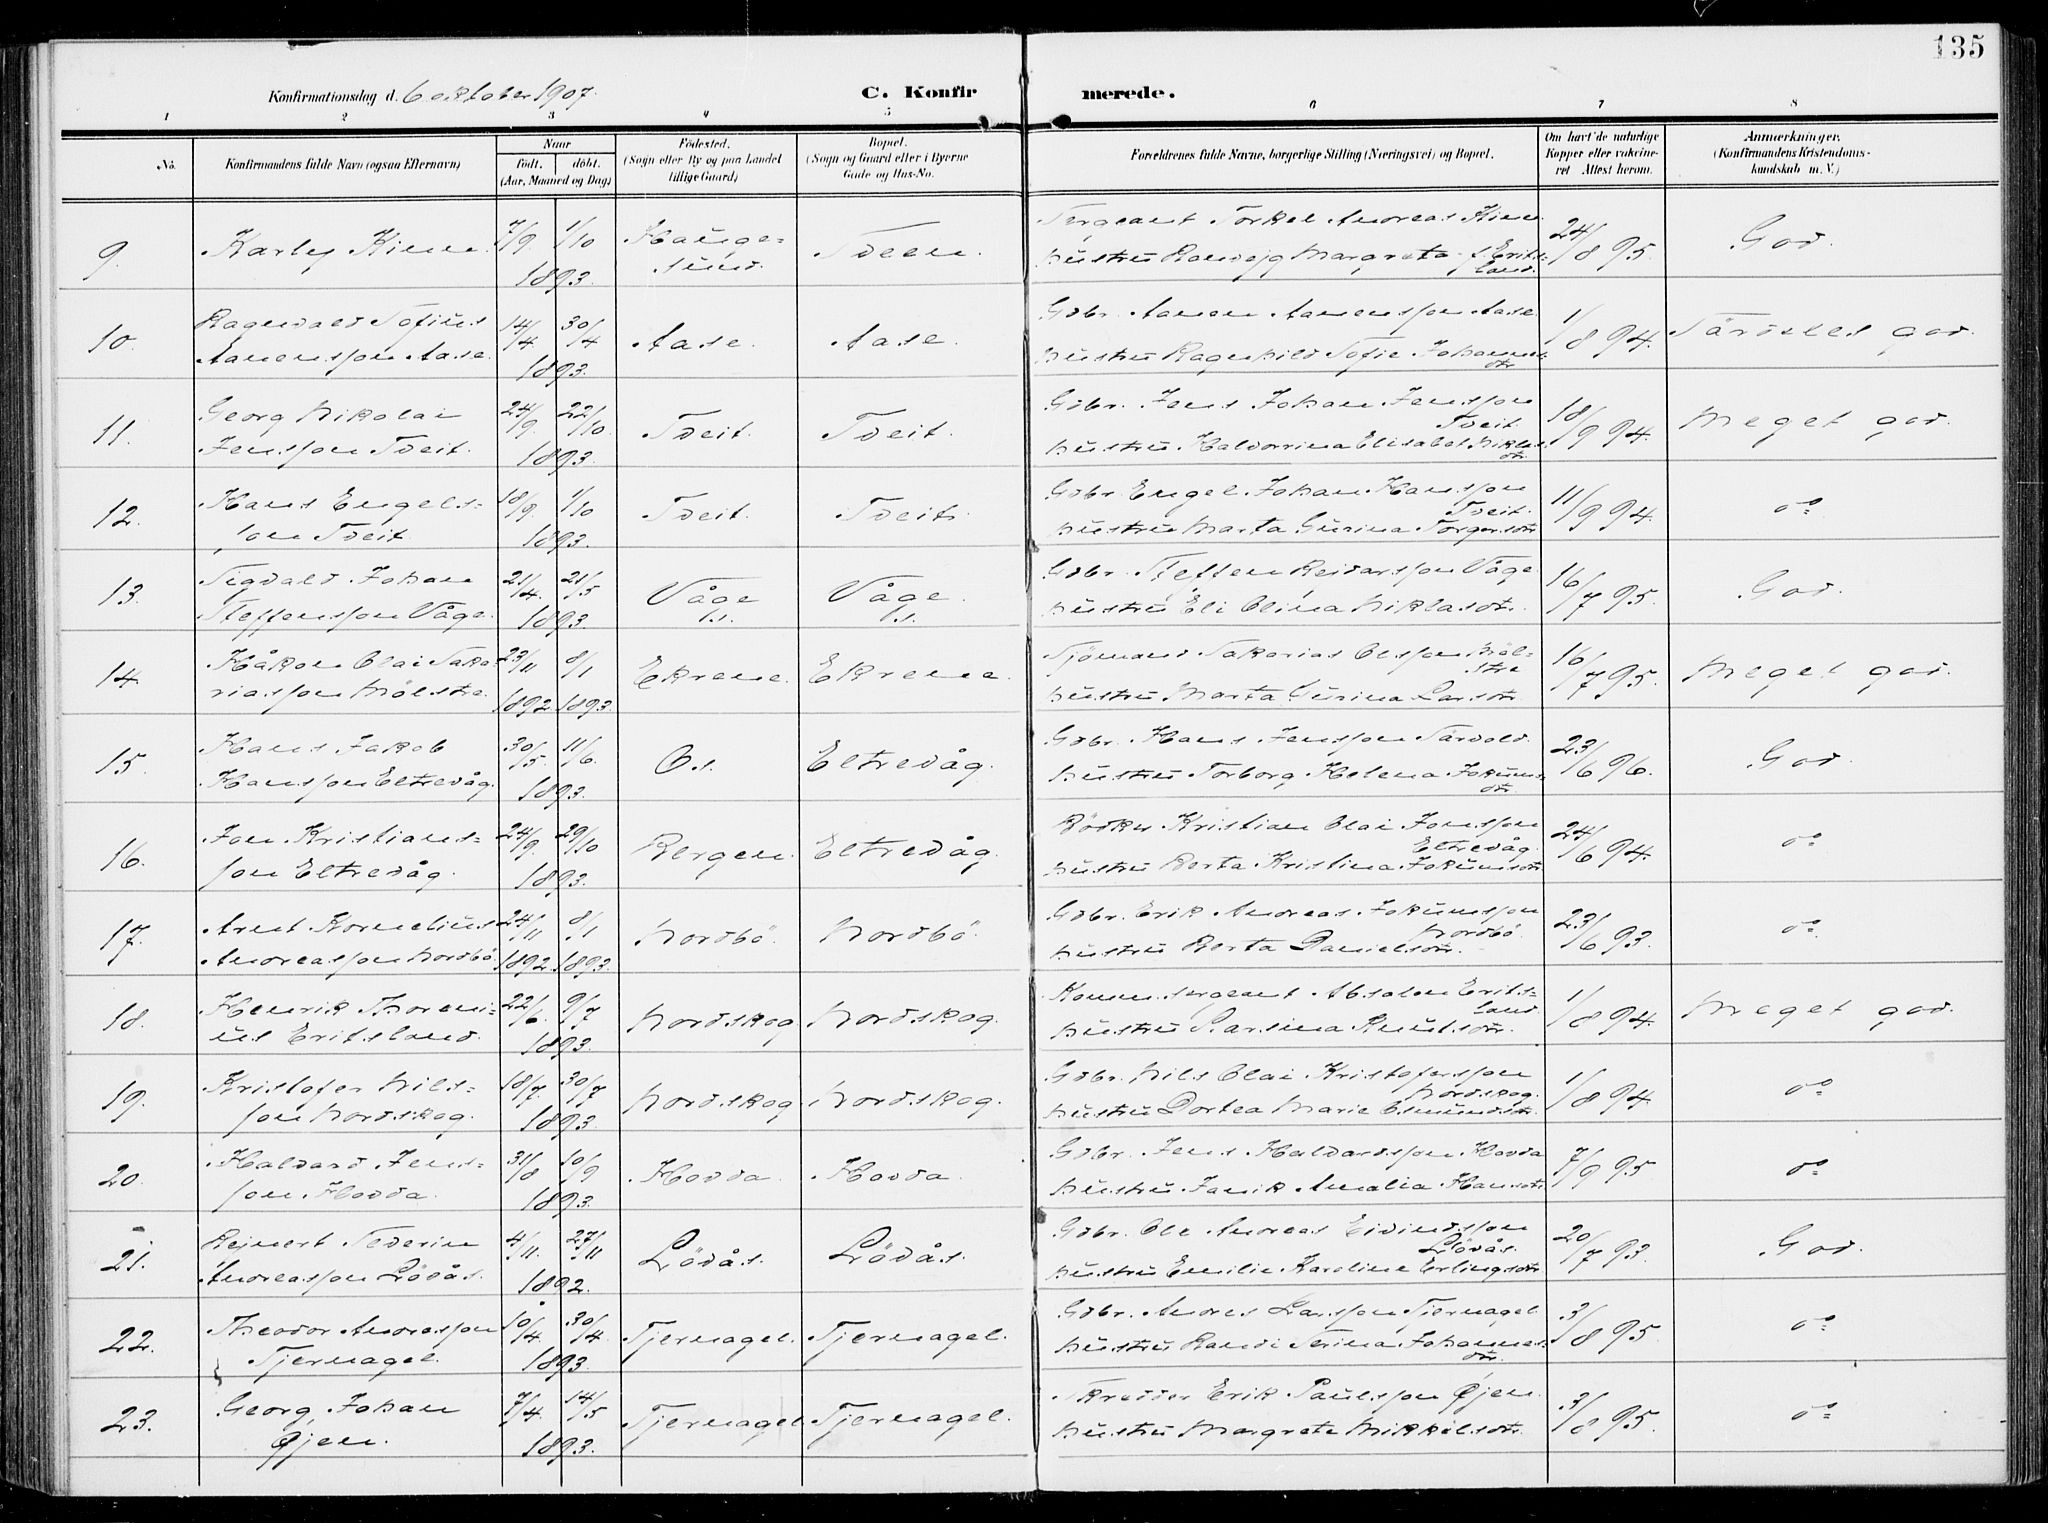 135
Konfirmationsdag d. 6 oktober 1907.
C. Konfirmerede.
1 2 3 4 5 6 7 8
No.
Konfirmandens fulde Navn (ogsaa Efternavn)
Naar
født. døbt.
(Aar, Maaned og Dag)
Fødested.
(Sogn eller By og paa Landet
tillige Gaard)
Bopæl.
(Sogn og Gaard eller i Byerne
Gade og Hus-No.
Forældrenes fulde Navne, borgerlige Stilling (Næringsvei) og Bopæl.
Om havt de naturlige
Kopper eller vakcine-
ret Attest herom.
Anmærkninger.
(Konfirmandens Kristendoms-
kundskab m. V.)
9. Karly Kinn 7/9 1/10 1893. Hauge-
sund. Tveen.
Sergeant Torkel Andreas Kinn
hustru Ranveig Margreta f. Erits-
land. 24/8 95. God.
10. Ragnvald Sofius
Aanensson Aase. 14/4 30/4 1893. Aase. Aase.
Gdbr. Aanen Aanensson Aase
hustru Ragnhild Sofie Johannes-
dtr 1/8 94. Særdeles god.
11. Georg Nikolai
Jensson Tveit. 24/9 22/10 1893. Tveit. Tveit.
Gdbr. Jens Johan Jensson
Tveit.
hustru Haldorrina Elisabet Niklas-
dtr. 18/9 94. Meget god.
12. Hans Engels-
son Tveit. 18/9 1/10 1893. Tveit. Tveit.
Gdbr. Engel Johan Hansson
Tveit.
hustru Marta Gurina Torgersdtr 11/9 94. do
13. Sigvald Johan
Steffensson Våge. 21/4 21/5 1893. Våge
l.s. Våge.
l.s.
Gdbr. Steffen Reidarsson Våge.
hustru Eli Olina Niklasdtr. 16/7 95. God.
14. Håkon Olai Saka-
riasson Mølstre. 23/11 1892. 8/1 1893. Ekrene. Ekrene.
Sjømand Sakarias Olsson Møl-
stre
hustru Marta Gurina Larsdtr. 16/7 95. Meget god.
15. Hans Jakob
Hansson Eltrevåg. 30/5. 11/6. 1893. Os. Eltrevåg.
Gdbr. Hans Jensson Særvold.
hustru Torborg Helena Jokums-
dtr. 23/6 96. God.
16. Jon Kristians-
son Eltrevåg. 24/9. 29/10 1893. Bergen. Eltrevåg.
Bødker Kristian Olai Jonsson
Eltrevåg.
hustru Berta Kristina Jokumsdtr 24/6 94. do
17. Arnt Kornelius
Andreasson Nordbø. 24/11 1892. 8/1 1893. Nordbø. Nordbø.
Gdbr. Erik Andreas Jokumsson
Nordbø.
hustru Berta Danielsdtr. 23/6 93. do
18. Henrik Thoreni-
us Eritsland. 22/6. 9/7 1893. Nordskog Nordskog.
Komm.sergeant Absalon Erits-
land.
hustru Karsina Knutsdtr. 1/8 94. Meget god.
19. Kristofer Nils-
son Nordskog. 18/7. 30/7 1893. Nordskog Nordskog.
Gdbr. Nils Olai Kristofersson
Nordskog.
hustru Dortea Marie Osmundsdtr. 1/8 94. do
20. Halvard Jens-
son Hovda. 31/8 10/9 1893. Hovda. Hovda.
Gdbr. Jens Halvardsson Hovda
hustru Janik Amalia Hansdtr 7/9 95. do
21. Reinert Severin
Andreasson Løvås. 4/11. 27/11 1892. Løvås. Løvås.
Gdbr. Ole Andreas Eivindsson
Løvås.
hustru Emilie Karoline Erlingsdtr 20/7 93. God.
22. Theodor Andersson
Tjernagel. 10/4. 30/4. 1893. Tjernagel. Tjernagel.
Gdbr. Andres Larsson Tjernagel.
hustru Randi Serina Johannes-
dtr. 3/8 95. do
23. Georg Johan
Øjen. 7/4. 14/5 1893. Tjernagel Tjernagel.
Skredder Erik Paulsson Øjen.
hustru Margrete Mikkelsdtr. 3/8 95. do